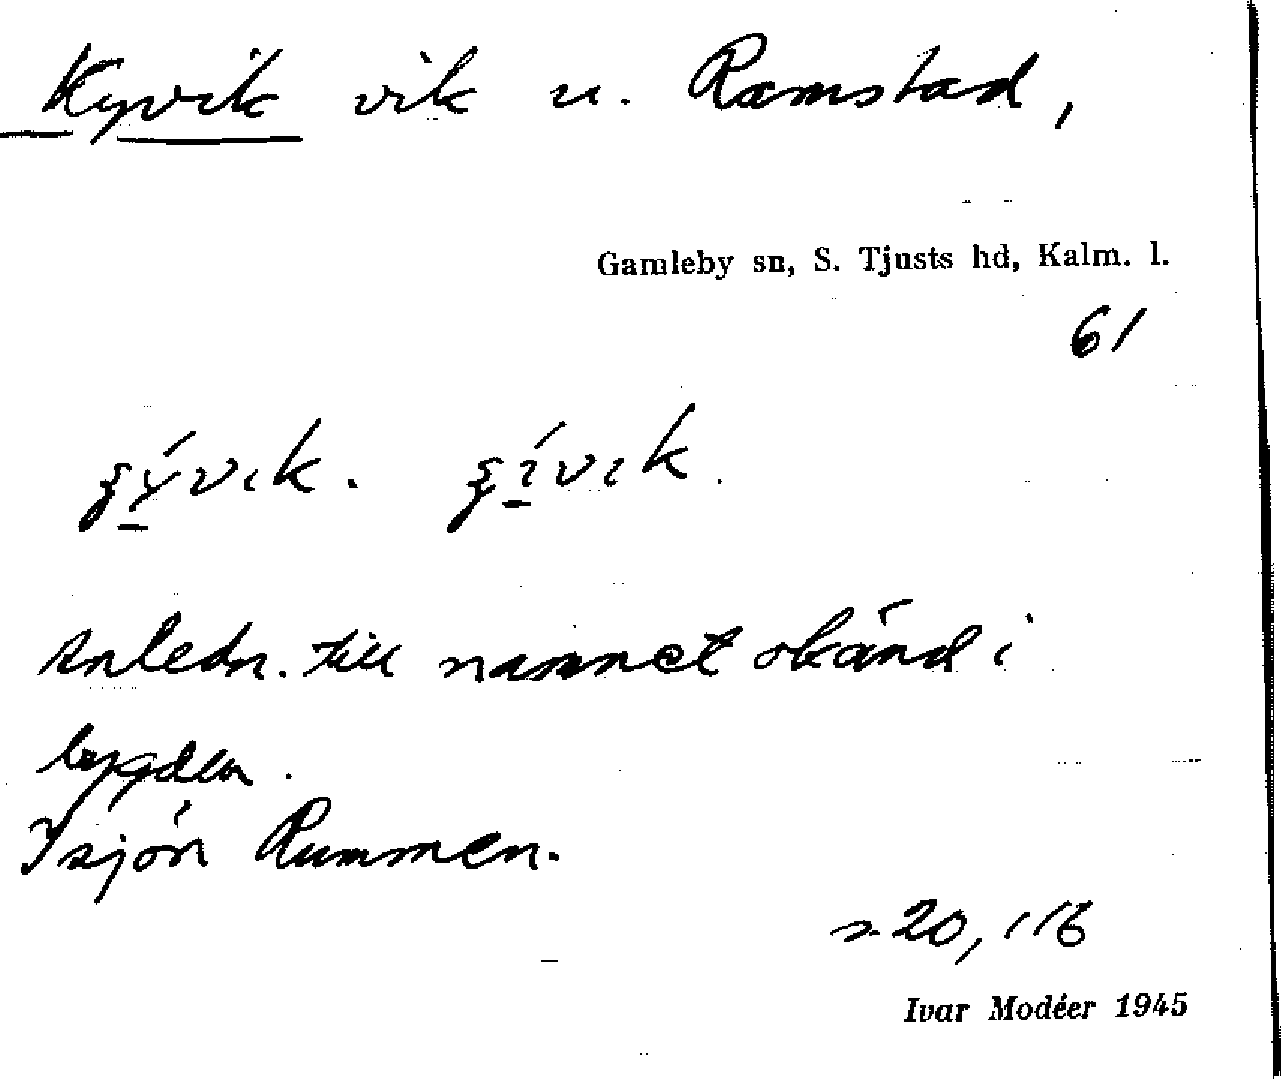 Kyvik vik u. Ramstad,
Gamleby sn, S. Tjusts hd, Kalm. l.
61
ꞩý̲vık. ꞩı̲́vık.
Anledn. till namnet okänd i
bygden.
I sjön Rummen.
s. 20, 116
Ivar Modéer 1945